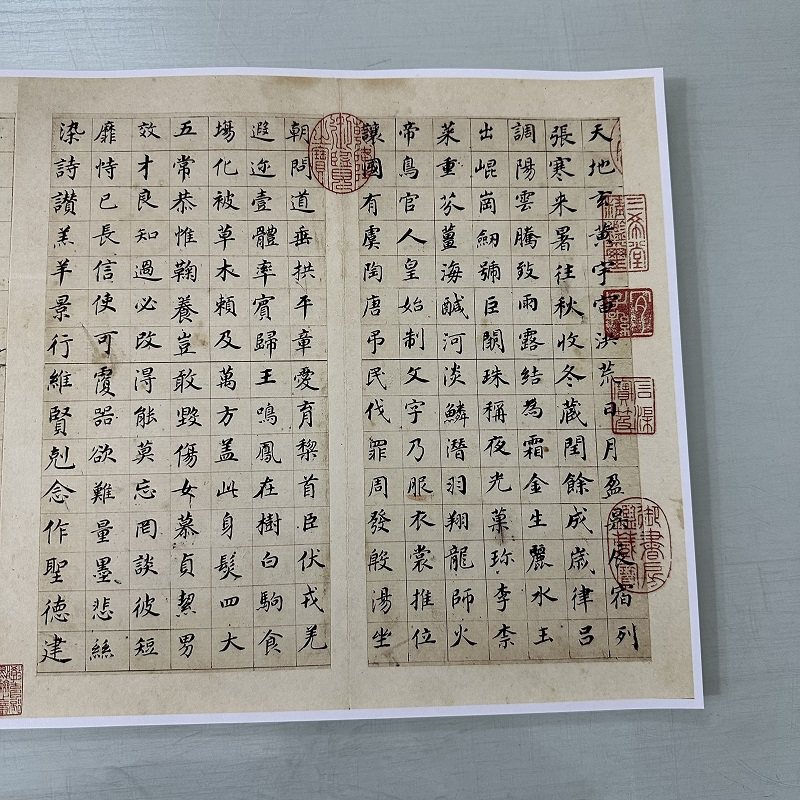 天地玄黃宇宙洪荒日月盈昃辰宿列
張寒来暑往秋收冬藏閏餘成歲律吕
調陽雲騰致雨露結為霜金生麗水玉
出崐崗劒號巨闕珠稱夜光菓珎李柰
菜重芥薑海醎河淡鱗潛羽翔龍師火
帝鳥官人皇始制文字乃服衣裳推位
讓國有虞陶唐弔民伐罪周發殷湯坐
朝問道垂拱平章愛育黎首臣伏戎羌
遐迩壹體率賓歸王鳴鳳在樹白駒食
塲化被草木頼及萬方盖此身髮四大
五常恭惟鞠養豈敢毀傷女慕貞絜男
效才良知過必改得能莫忘罔談彼短
靡恃己長信使可覆器欲難量墨悲絲
染詩讃羔羊景行維賢剋念作聖德建
三希堂
精鑑璽
宜子孫
石渠
寶笈
御書房
鑑藏寶
乾隆
御覽
之寶